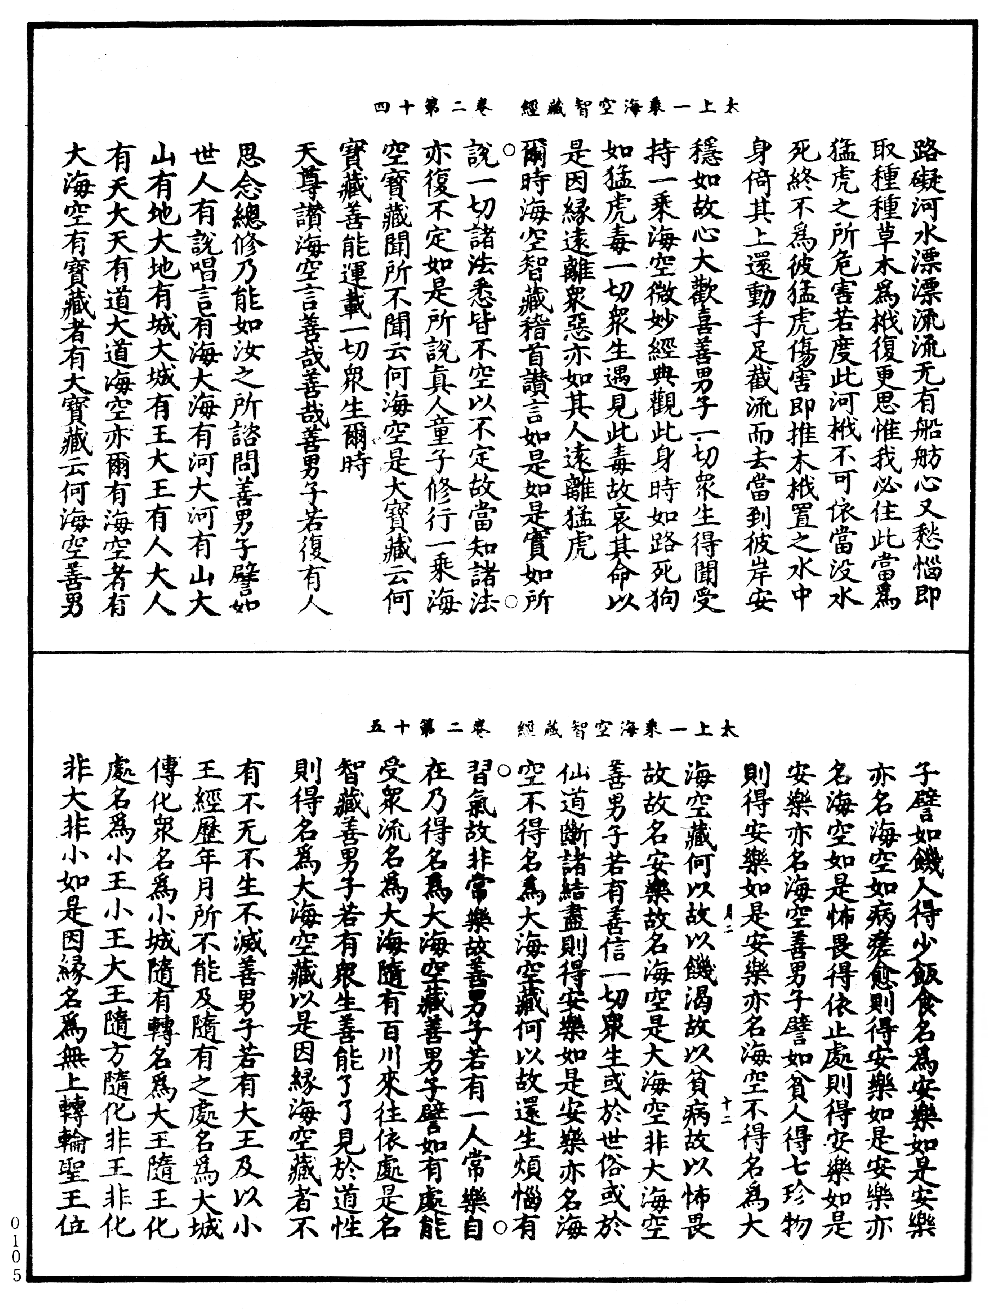 太上一乗海空智藏經　卷二第十四
路礙河水漂漂流流无有船舫心又愁惱即
取種種草木為栰復更思惟我必住此當為
猛虎之所危害若度此河栰不可依當没水
死終不為彼猛虎傷害即推木栰置之水中
身倚其上還動手足截流而去當到彼岸安
穩如故心大歡喜善男子一切衆生得聞受
持一乗海空微妙經典觀此身時如路死狗
如猛虎毒一切衆生遇見此毒故哀其命以
是因縁遠離衆惡亦如其人遠離猛虎
爾時海空智藏稽首讃言如是如是實如所
説一切諸法悉皆不空以不定故當知諸法
亦復不定如是所説真人童子修行一乗海
空寶藏聞所不聞云何海空是大寶藏云何
寶藏善能運載一切衆生爾時
天尊讃海空言善哉善哉善男子若復有人
思念總修乃能如汝之所諮問善男子譬如
世人有説唱言有海大海有河大河有山大
山有地大地有城大城有王大王有人大人
有天大天有道大道海空亦爾有海空者有
大海空有寶藏者有大寶藏云何海空善男
太上一乗海空智藏經　卷二第十五
子譬如饑人得少飯食名為安樂如是安樂
亦名海空如病瘥愈則得安樂如是安樂亦
名海空如是怖畏得依止處則得安樂如是
安樂亦名海空善男子譬如貧人得七珍物
則得安樂如是安樂亦名海空不得名為大
海空藏何以故以饑渴故以貧病故以怖畏
故故名安樂故名海空是大海空非大海空
善男子若有善信一切衆生或於世俗或於
仙道斷諸結盡則得安樂如是安樂亦名海
空不得名為大海空藏何以故還生煩惱有
習氣故非常樂故善男子若有一人常樂自
在乃得名為大海空藏善男子譬如有處能
受衆流名為大海隨有百川來往依處是名
智藏善男子若有衆生善能了了見於道性
則得名為大海空藏以是因縁海空藏者不
有不无不生不滅善男子若有大王及以小
王經歴年月所不能及隨有之處名為大城
傳化衆名為小城隨有轉名為大王隨王化
處名為小王小王大王隨方隨化非王非化
非大非小如是因縁名為無上轉輪聖王位
十二
0105